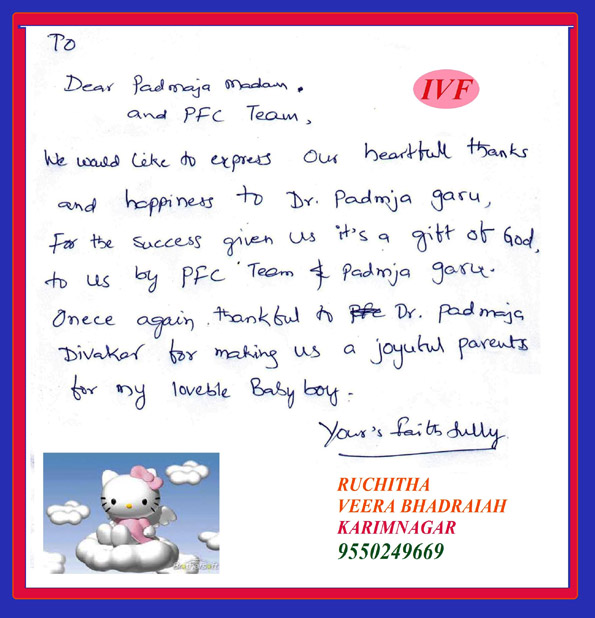 To
Dear Padmaja Madam.
and PFC Team,
IVF
We would like to express our heartfull thanks
and happiness to Dr. Padmja garu,
For the success given us it's a gift of God,
to us by PFC Team & Padmja garu.
Onece again, thankful to Pfc Dr. Padmaja
Divakar for making us a joyutul parents
for my loveble Baby boy.
Your's faithfully
RUCHITHA
VEERA BHADRAIAH
KARIMNAGAR
9550249669